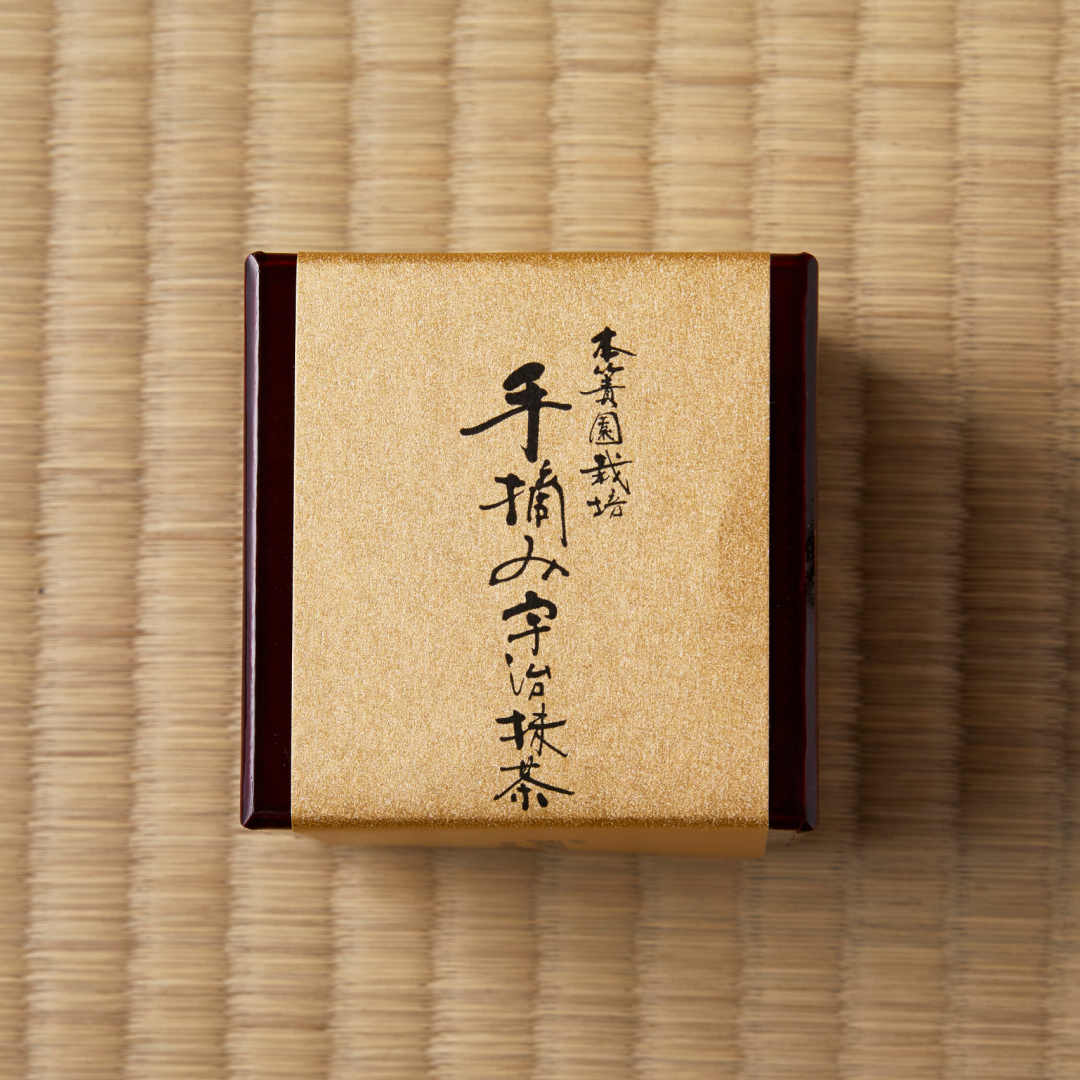 本簀園栽培
手摘み宇治抹茶